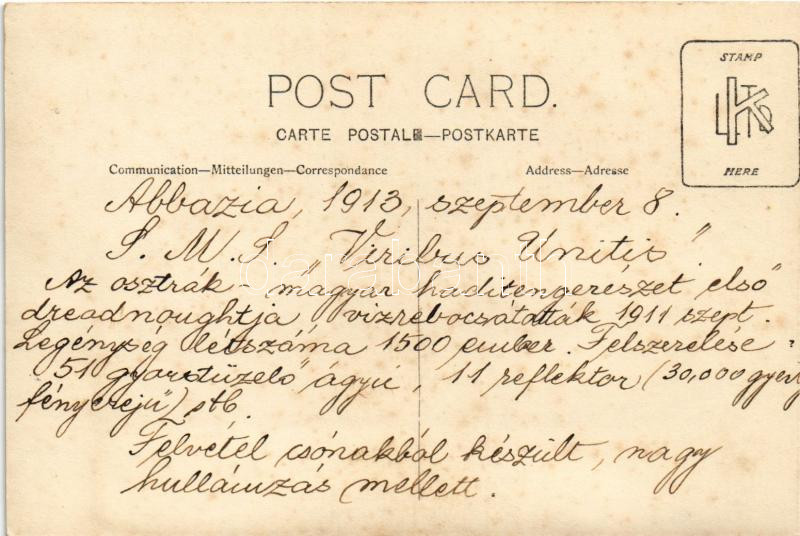 POST CARD.
CARTE POSTALE—POSTKARTE
Communication—Mitteilungen—Correspondance
Address—Adresse
STAMP
HERE
Abbazia, 1913, szeptember 8.
S. M. S. „Viribus Unitis”.
Az osztrák-magyar haditengerészet első
dreadnoughtja vízrebocsátották 1911 szept.
Legénység létszáma 1500 ember. Felszerelése:
51 gyorstüzelő ágyú, 11 reflektor (30,000 gyertya
fényerejű) stb.
Felvétel csónakból készült, nagy
hullámzás mellett.